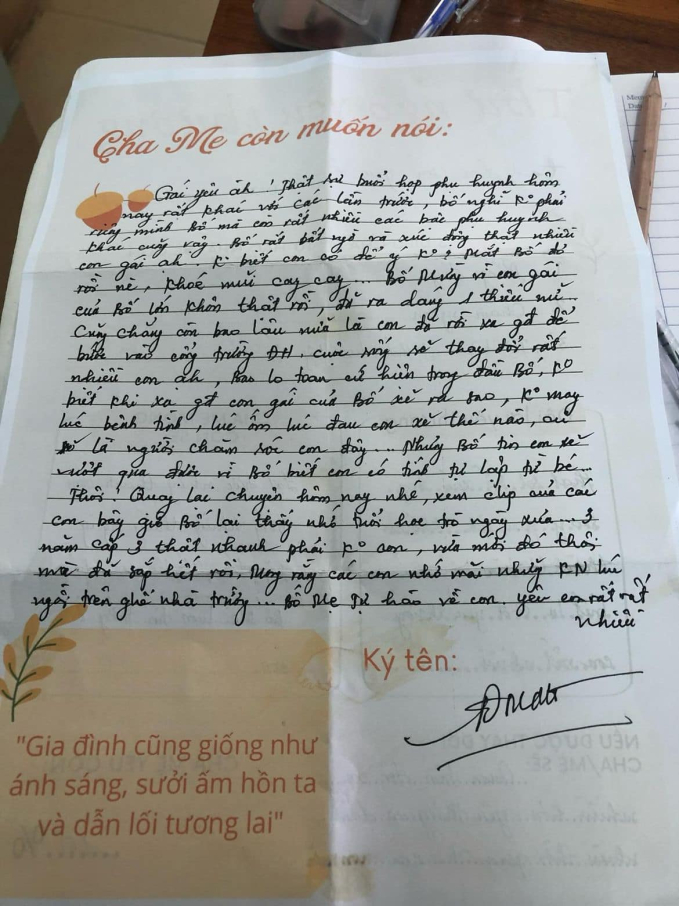 Cha Mẹ còn muốn nói:
Gái yêu àh! Thật sự buổi họp phụ huynh hôm
nay rất khác với các lần trước, bố nghĩ ko phải
riêng mình Bố mà còn rất nhiều các bác phụ huynh
khác cũng vậy. Bố rất bất ngờ và xúc động thật nhiều
con gái ah. Ko biết con có để ý ko? Mắt Bố đỏ
rồi nè, khoé mũi cay cay... Bố mừng vì con gái
của Bố lớn khôn thật rồi, đã ra dáng 1 thiếu nữ.
Cũng chẳng còn bao lâu nữa là con đã rời xa gđ để
bước vào cổng trường ĐH. cuộc sống sẽ thay đổi rất
nhiều con àh, Bao lo toan cứ hiện trong đầu Bố, ko
biết khi xa gđ con gái của Bố xẽ ra sao, ko may
lúc bệnh tình, lúc ốm lúc đau con xẽ thế nào, ai
sẽ là người chăm sóc con đây... Nhưng Bố tin con xẽ
vượt qua được vì Bố biết con có tính tự lập từ bé...
Thôi! Quay lại chuyện hôm nay nhé, xem clip của các
con bây giờ Bố lại thấy nhớ thời học trò ngày xưa... 3
năm cấp 3 thật nhanh phải ko con, vừa mới đó thôi
mà đã sắp hết rồi, Mong rằng các con nhớ mãi những KN lúc
ngồi trên ghế nhà trường... Bố Mẹ tự hào về con. yêu con rất rất
nhiều
Ký tên:
"Gia đình cũng giống như
ánh sáng, sưởi ấm hồn ta
và dẫn lối tương lai"
NẾU ĐƯỢC THAY ĐỔI
CHA/MẸ SẼ